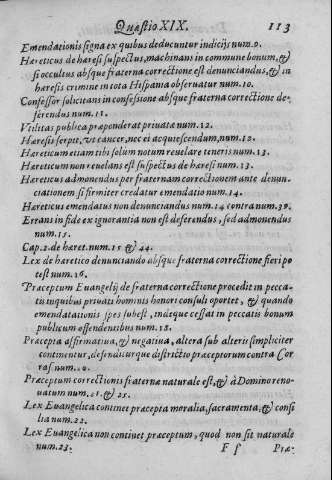 Quæstio XIX. 113
Emendationis signa ex quibus deducuntur indicijs num.9.
Hæreticus de hæresi suspectus, machinans in commune bonum, &
si occultus absque fraterna correctione est denunciandus, & in
hæresis crimine in tota Hispania obseruatur num.10.
Confessor solicitans in confessione absque fraterna correctione de-
ferendus num.11.
Vtilitas publica præponderat priuatæ num.12.
Hæresis serpit, vt cancer, nec ei acquiescendum, num.12.
Hæreticum etiam tibi solum notum reuelare teneris num.13.
Hæreticum non reuelans est suspectus de hæresi num.13.
Hæreticus admonendus per fraternam correctionem ante denun-
ciationem, si firmiter credatur emendatio num.14.
Hæreticus emendatus non denunciandus num.14 contra num.
Errans in fide ex ignorantia non est deferendus, sed admonendus
num.15.
Cap.2. de hæret. num.15 & 44.
Lex de hæretico denunciando absque fraterna correctione fieri po
test num.16.
Præceptum Euangelij de fraterna correctione procedit in pecca-
tis in quibus priuati hominis honori consuli oportet, & quando
emendatationis spes subest, indeque cessat in peccatis bonum
publicum offendentibus num.18.
Præcepta affirmatiua, & negatiua, altera sub alteris simpliciter
continentur, defenditurque districtio præceptorum contra Cor
ras. num.
Præceptum correctionis fraternæ naturale est, & à Domino reno-
uatum num.21. & 25.
Lex Euangelica continet præcepta moralia, sacramenta, & consi
lia num.22.
Lex Euangelica non continet præceptum, quod non sit naturale
num.23. F f Præ-